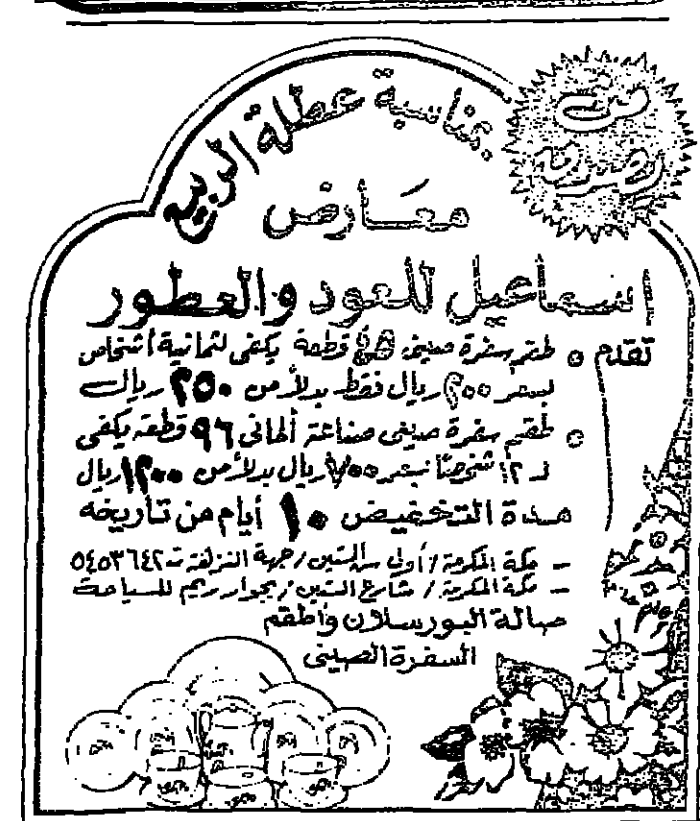 بمناسبة عطلة الربيع
معارض
اسماعيل للعود والعطور
تقدم
• طقم سفرة صيني قطعة يكفي لثمانية أشخاص
بسعر ٢٠٠ ريال فقط بدلاً من ٢٥٠ ريال
• طقم سفرة صيني صناعة ألماني ٩٦ قطعة يكفي
لـ ١٢ شخصاً بسعر ٧٠٠ ريال بدلاً من ١٢٠٠ ريال
مدة التخفيض ١٠ أيام من تاريخه
- مكة المكرمة / أول الستين / جهة النزلة ت ٥٤٥٣٦٤٢
- مكة المكرمة / شارع الستين / بجوار ريم للسياحة
صالة البورسلان وأطقم
السفرة الصيني